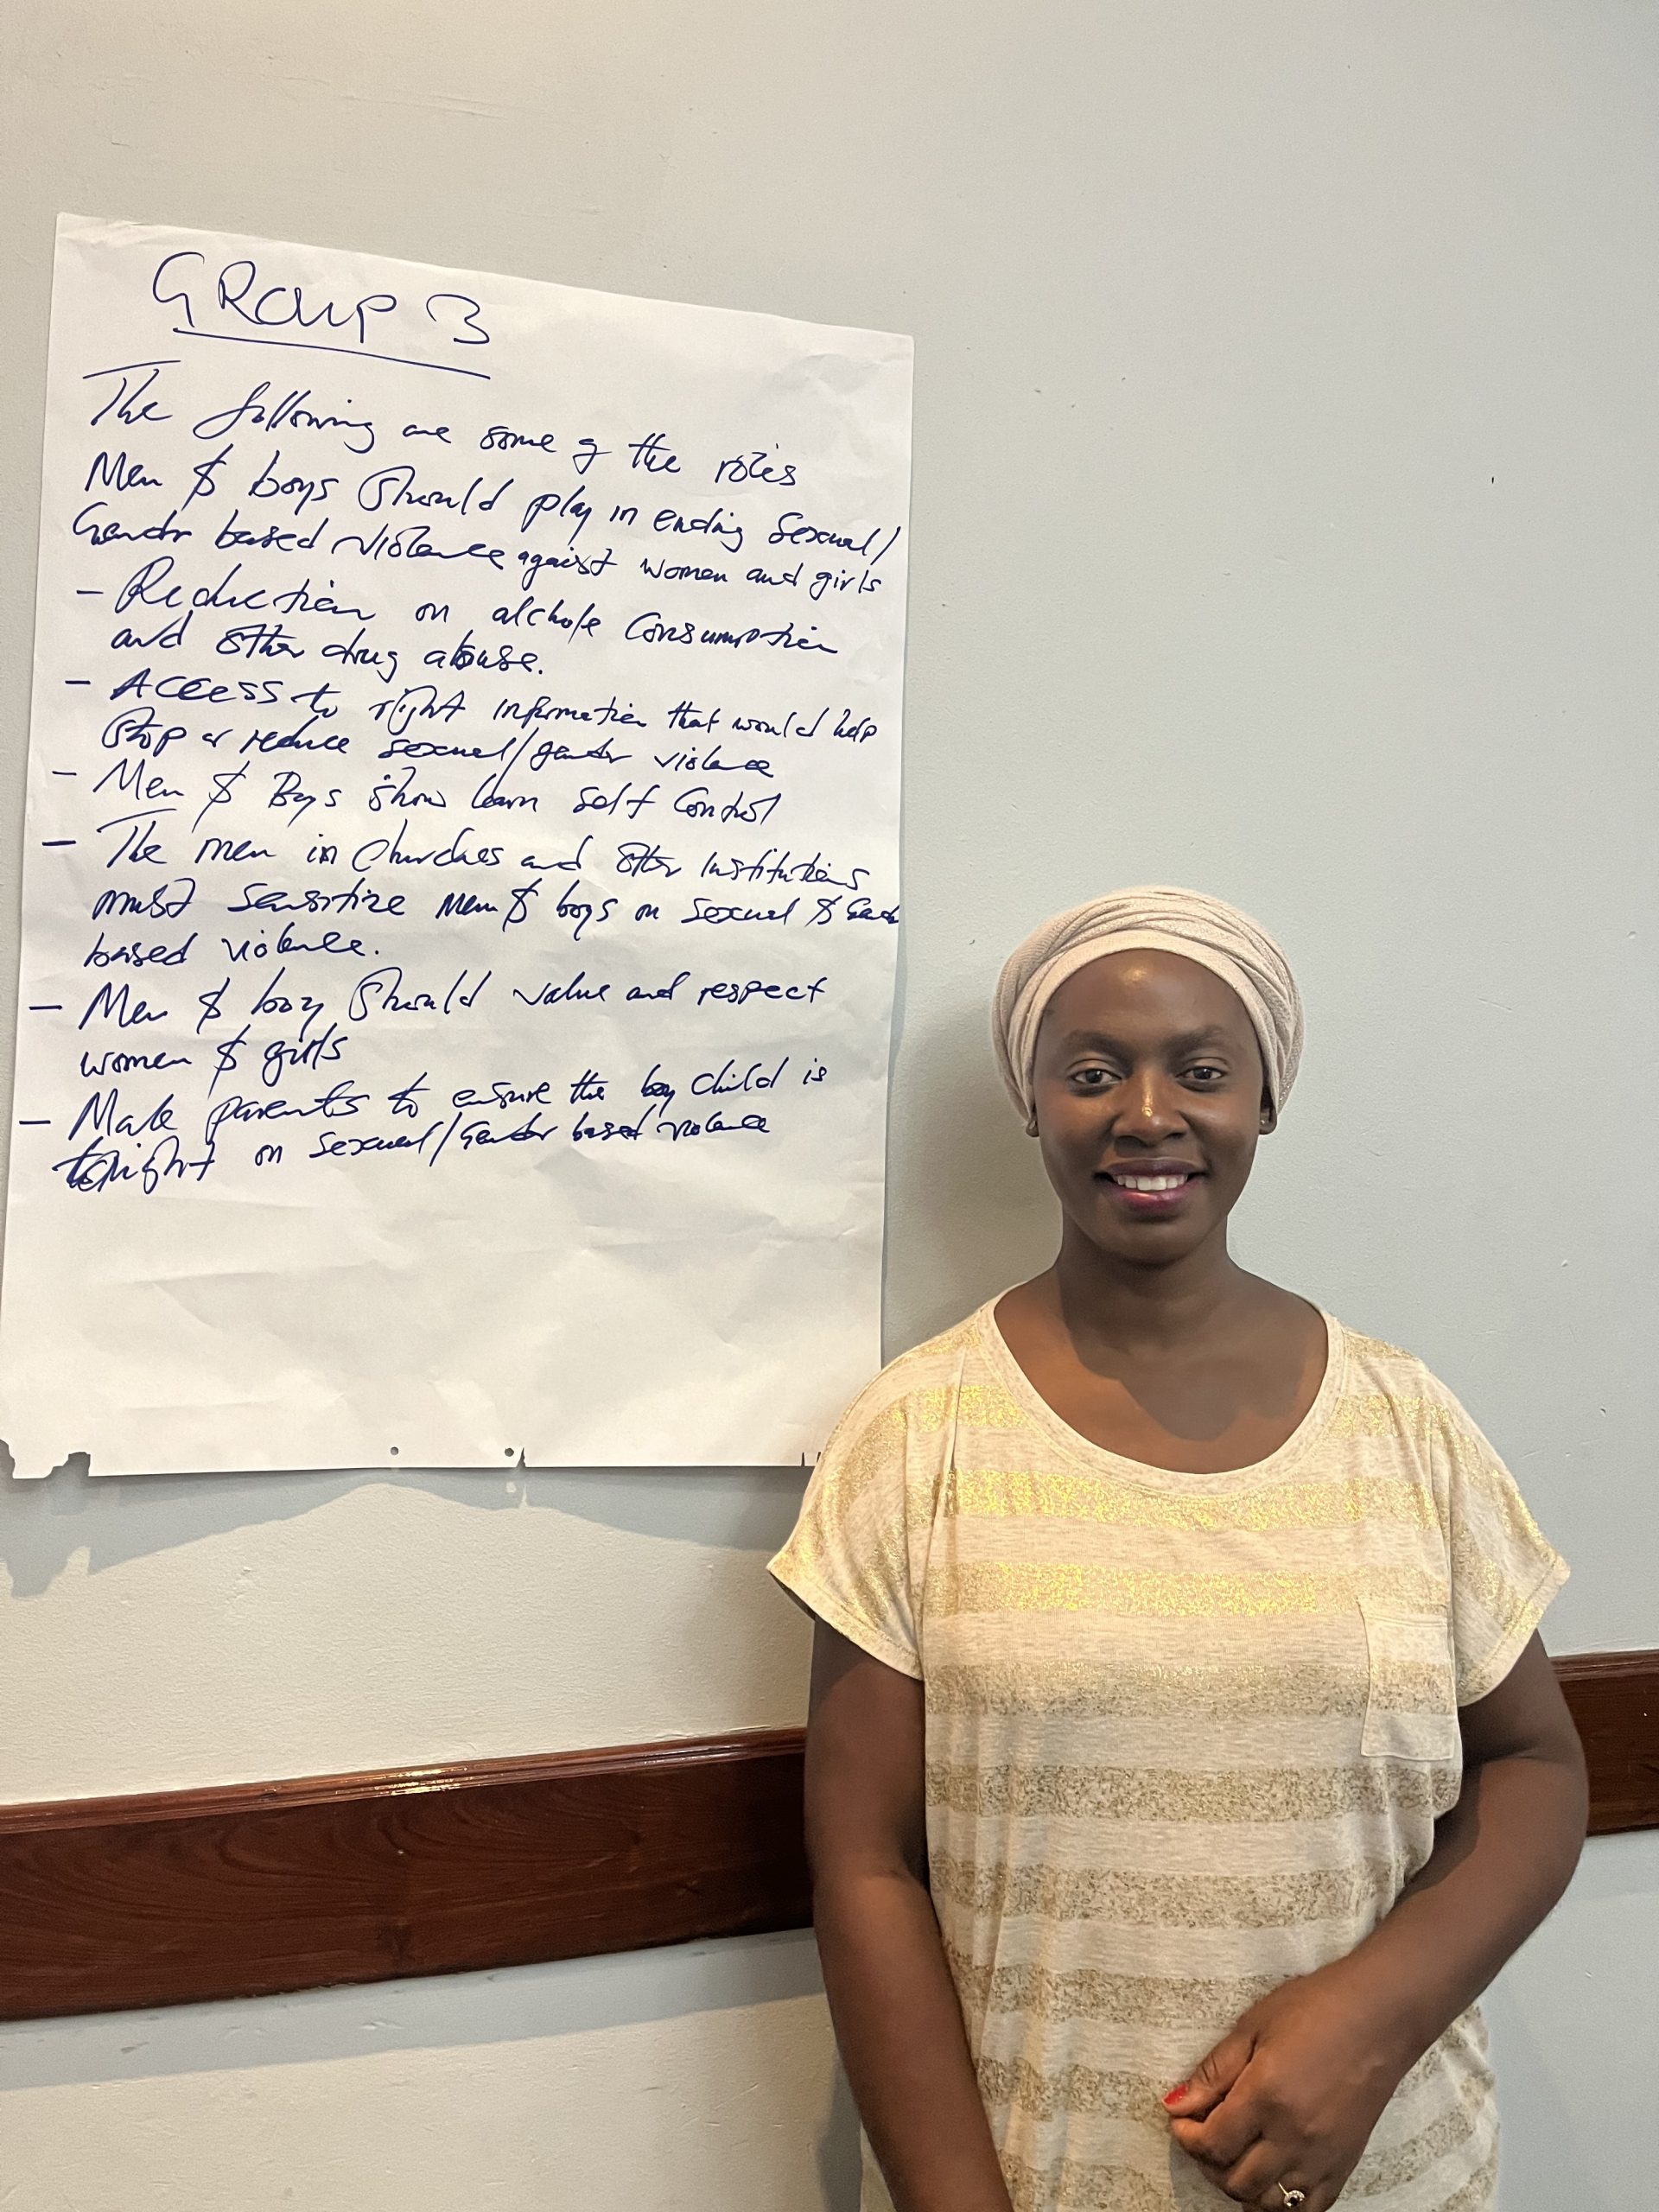 GROUP 3
The following are some of the roles
Men & boys should play in ending sexual/
Gender based violence against women and girls
- Reduction on alchole consumption
and other drug abuse.
- Access to right information that would help
stop or reduce sexual/gender violence
- Men & Boys show learn self control
- The men in churches and other institutions
must sensitize men & boys on sexual &
based violence.
- Men & boy should value and respect
women & girls
- Male parents to ensure the boy child is
on sexual/Gender based violence